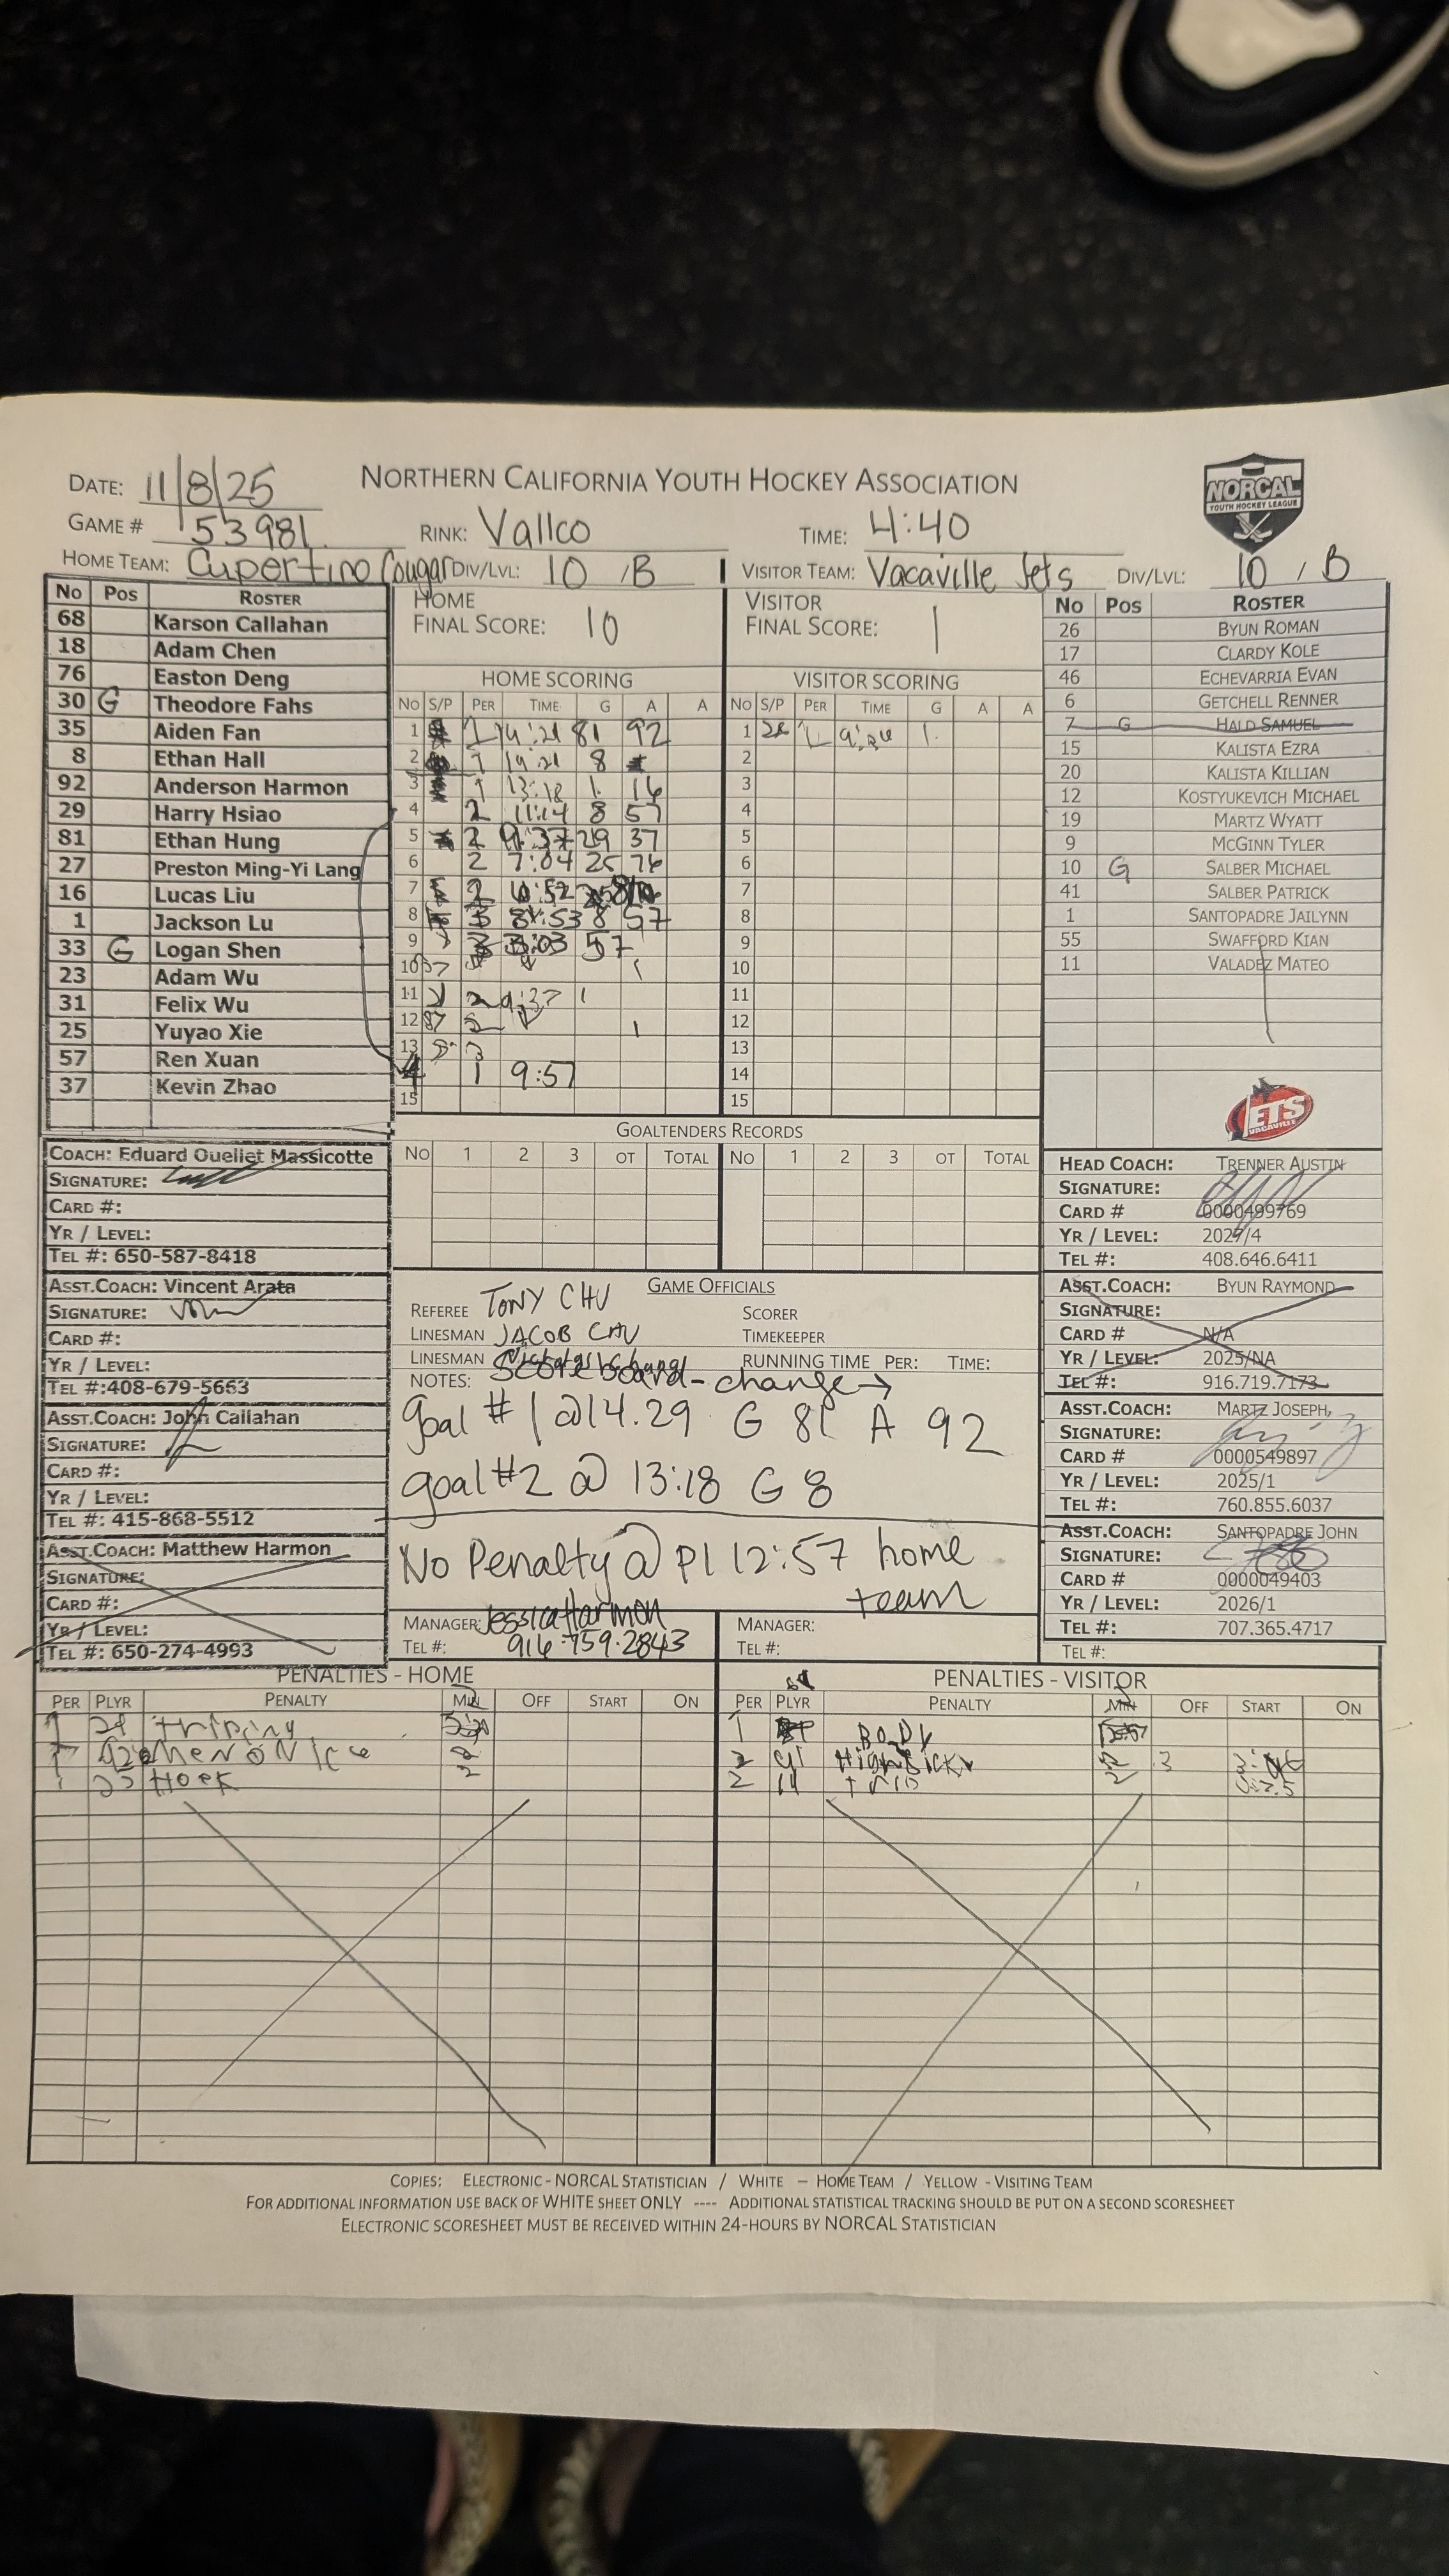 DATE: 11/8/25
NORTHERN CALIFORNIA YOUTH HOCKEY ASSOCIATION
NORCAL
YOUTH HOCKEY LEAGUE
GAME # 53981
RINK: Vallco
TIME: 4:40
HOME TEAM: Cupertino Cougar DIV/LVL: 10 / B
VISITOR TEAM: Vacaville Jets DIV/LVL: 10 / B
No Pos ROSTER
68 Karson Callahan
18 Adam Chen
76 Easton Deng
30 G Theodore Fahs
35 Aiden Fan
8 Ethan Hall
92 Anderson Harmon
29 Harry Hsiao
81 Ethan Hung
27 Preston Ming-Yi Lang
16 Lucas Liu
1 Jackson Lu
33 G Logan Shen
23 Adam Wu
31 Felix Wu
25 Yuyao Xie
57 Ren Xuan
37 Kevin Zhao
HOME FINAL SCORE: 10
VISITOR FINAL SCORE: 1
HOME SCORING
No S/P PER TIME G A A
1 1 14:21 81 92
2 1 14:21 8
3 1 13:18 1 16
4 2 11:14 8 57
5 2 9:37 29 37
6 2 7:04 25 76
7 2
8 3 8 57
9 3 3:03 57
10 37 1
11 2 9:37 1
12 1
13
14 1 9:57
15
VISITOR SCORING
No S/P PER TIME G A A
1 1
2
3
4
5
6
7
8
9
10
11
12
13
14
15
No Pos ROSTER
26 BYUN ROMAN
17 CLARDY KOLE
46 ECHEVARRIA EVAN
6 GETCHELL RENNER
7 G HALD SAMUEL
15 KALISTA EZRA
20 KALISTA KILLIAN
12 KOSTYUKEVICH MICHAEL
19 MARTZ WYATT
9 MCGINN TYLER
10 G SALBER MICHAEL
41 SALBER PATRICK
1 SANTOPADRE JAILYNN
55 SWAFFORD KIAN
11 VALADEZ MATEO
JETS
VACAVILLE
GOALTENDERS RECORDS
No 1 2 3 OT TOTAL No 1 2 3 OT TOTAL
COACH: Eduard Ouellet Massicotte
SIGNATURE:
CARD #:
YR / LEVEL:
TEL #: 650-587-8418
ASST.COACH: Vincent Arata
SIGNATURE:
CARD #:
YR / LEVEL:
TEL #:408-679-5663
ASST.COACH: John Callahan
SIGNATURE:
CARD #:
YR / LEVEL:
TEL #: 415-868-5512
ASST.COACH: Matthew Harmon
SIGNATURE:
CARD #:
YR / LEVEL:
TEL #: 650-274-4993
GAME OFFICIALS
REFEREE TONY CHU
SCORER
LINESMAN JACOB CHU
TIMEKEEPER
LINESMAN
RUNNING TIME PER: TIME:
NOTES: Scoreboard - change →
goal #1 @14.29 G 81 A 92
goal #2 @ 13:18 G 8
No Penalty @ P1 12:57 home
team
MANAGER: Jessica Harmon
TEL #: 916-759-2843
MANAGER:
TEL #:
HEAD COACH: TRENNER AUSTIN
SIGNATURE:
CARD # 0000499769
YR / LEVEL: 2027/4
TEL #: 408.646.6411
ASST.COACH: BYUN RAYMOND
SIGNATURE:
CARD # N/A
YR / LEVEL: 2025/NA
TEL #: 916.719.7173
ASST.COACH: MARTZ JOSEPH
SIGNATURE:
CARD # 0000549897
YR / LEVEL: 2025/1
TEL #: 760.855.6037
ASST.COACH: SANTOPADRE JOHN
SIGNATURE:
CARD # 0000049403
YR / LEVEL: 2026/1
TEL #: 707.365.4717
TEL #:
PENALTIES - HOME
PER PLYR PENALTY MIN OFF START ON
tripiny
men on ice
Hook
PENALTIES - VISITOR
PER PLYR PENALTY MIN OFF START ON
1 BODY
2 41 3
2 14 trip
COPIES: ELECTRONIC - NORCAL STATISTICIAN / WHITE – HOME TEAM / YELLOW - VISITING TEAM
FOR ADDITIONAL INFORMATION USE BACK OF WHITE SHEET ONLY ---- ADDITIONAL STATISTICAL TRACKING SHOULD BE PUT ON A SECOND SCORESHEET
ELECTRONIC SCORESHEET MUST BE RECEIVED WITHIN 24-HOURS BY NORCAL STATISTICIAN